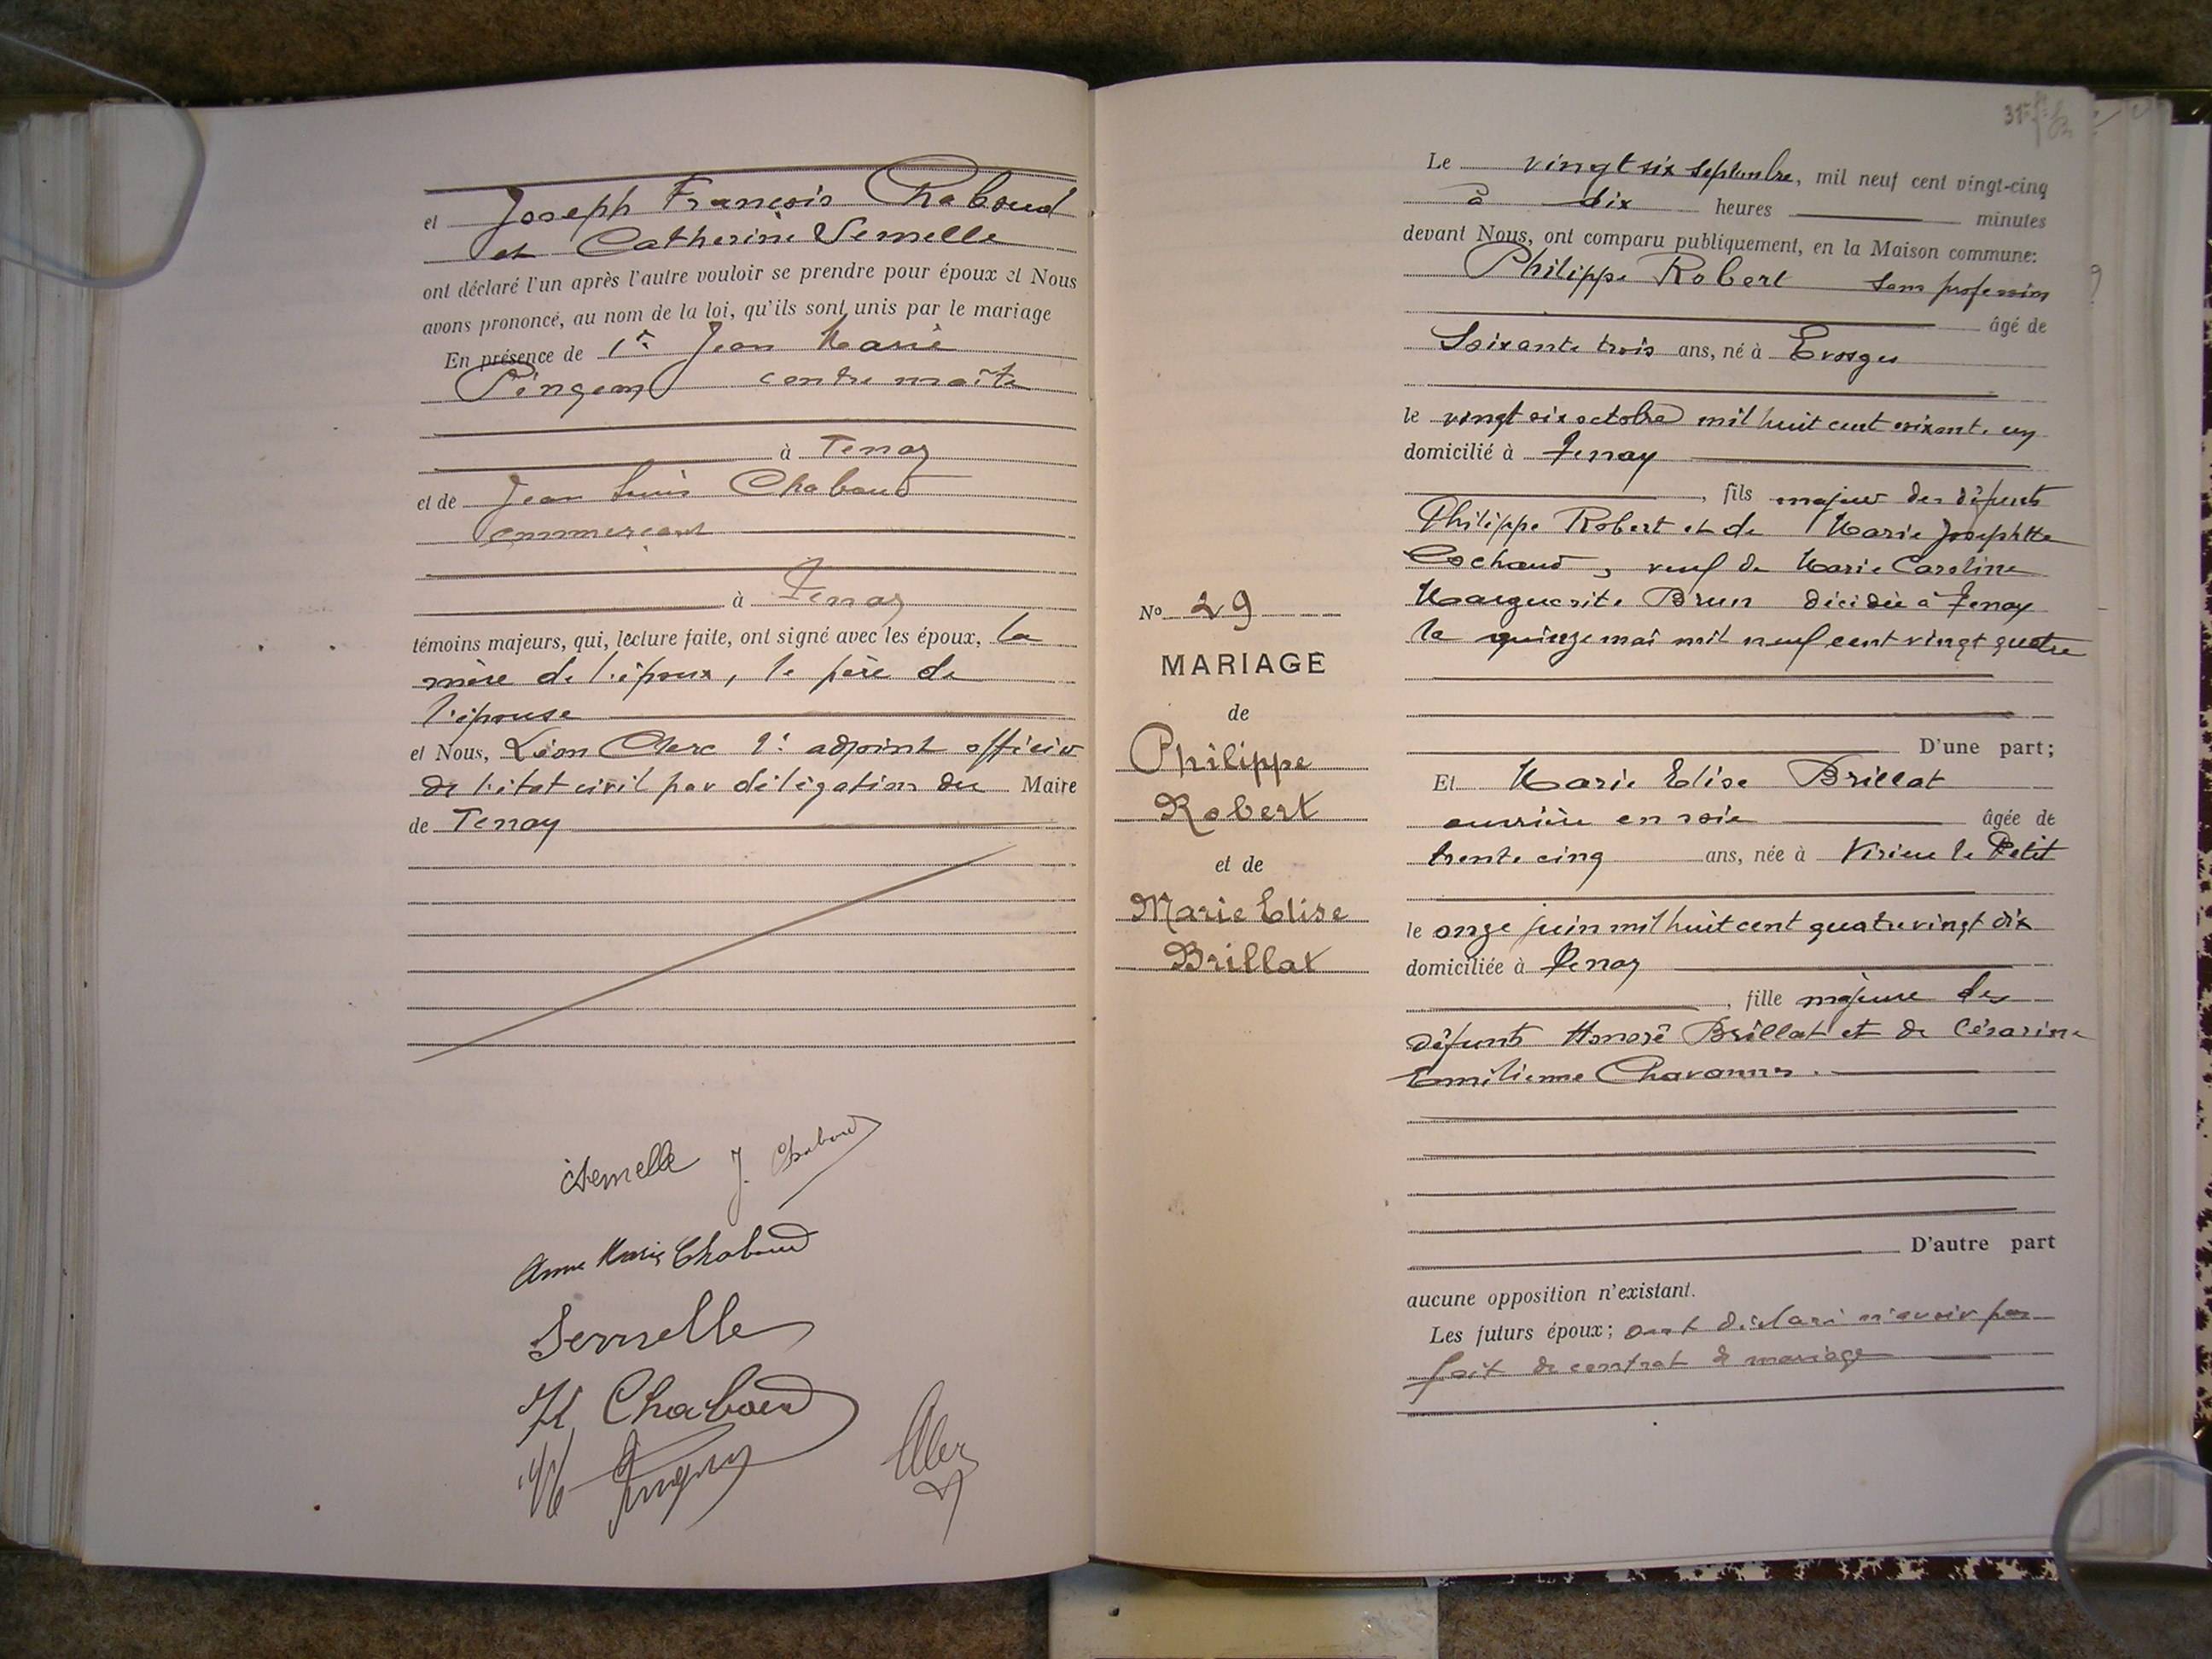 et Joseph François Chaboud
et Catherine Semelle
ont déclaré l'un après l'autre vouloir se prendre pour époux et Nous
avons prononcé, au nom de la loi, qu'ils sont unis par le mariage
En présence de 1° Jean Marie
Pingeon contre maître
à Tenay
et de Jean Louis Chaboud
commerçant
à Tenay
témoins majeurs, qui, lecture faite, ont signé avec les époux, la
mère de l'époux, le père de
l'épouse
et Nous, Léon Clerc 1er adjoint officier
de l'état civil par délégation du Maire
de Tenay
CSemelle J. Chaboud
Anne Marie Chaboud
Semelle
Chaboud
Pingeon
N° 29
MARIAGE
de
Philippe
Robert
et de
Marie Elise
Brillat
31
Le vingt six septembre, mil neuf cent vingt-cinq
à dix heures minutes
devant Nous, ont comparu publiquement, en la Maison commune:
Philippe Robert sans profession
âgé de
Soixante trois ans, né à Evosges
le vingt six octobre mil huit cent soixante un
domicilié à Tenay
, fils majeur des défunts
Philippe Robert et de Marie Josephtte
Cochaud, veuf de Marie Caroline
Marguerite Brun décidée à Tenay
le quinze mai mil neuf cent vingt quatre
D'une part;
Et Marie Elise Brillat
ouvrière en soie âgée de
trente cinq ans, née à Virieu le Petit
le onze juin mil huit cent quatre vingt dix
domiciliée à Tenay
, fille majeure des
défunts Honoré Brillat et de Césarine
Emilienne Chavannes.
D'autre part
aucune opposition n'existant.
Les futurs époux; ont déclaré n'avoir pas
fait de contrat de mariage